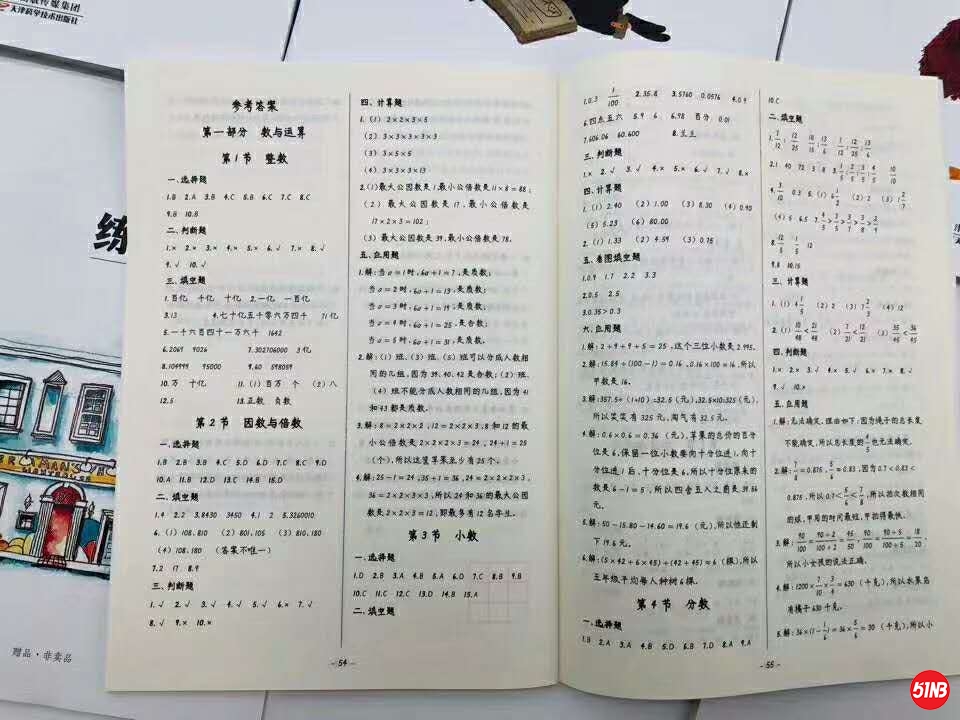 天津科学技术出版社
练
赠品·非卖品
参考答案
第一部分 数与运算
第1节 整数
一、选择题
1.B 2.A 3.B 4.C 5.B 6.C 7.C 8.C
9.B 10.B
二、判断题
1.× 2.× 3.× 4.× 5.× 6.√ 7.× 8.√
9.√ 10.√
三、填空题
1.百亿 千亿 十亿 2.一亿 一百亿
3.13 4.七十亿五千零六万四千 71亿
5.一十六百四十一万六千 1642
6.2069 9026 7.302706000 3亿
8.104999 95000 9.60 598059
10.万 十亿 11.(1)百万 个 (2)八
12.5 13.正数 负数
第2节 因数与倍数
一、选择题
1.B 2.B 3.B 4.C 5.D 6.D 7.C 8.C 9.D
10.A 11.B 12.D 13.C 14.B 15.D
二、填空题
1.4 2.2 3.8430 3450 4.1 2 5.3260010
6.(1)108,810 (2)801,105 (3)810,180
(4)108,180 (答案不唯一)
7.2 17 8.9
三、判断题
1.√ 2.√ 3.√ 4.√ 5.√ 6.× 7.√
8.√ 9.× 10.×
四、计算题
1.(1)2×2×3×5
(2)3×3×3×3×3
(3)3×5×5
(4)3×3×3×13
2.(1)最大公因数是1,最小公倍数是11×8=88;
(2)最大公因数是17,最小公倍数是
17×2×3=102;
(3)最大公因数是39,最小公倍数是78。
五、应用题
1.解:当a=1时,6a+1=7,是质数;
当a=2时,6a+1=13,是质数;
当a=3时,6a+1=19,是质数;
当a=4时,6a+1=25,是合数;
当a=5时,6a+1=31,是质数。
2.解:(1)班、(3)班、(5)班可以分成人数相
同的几组,因为39、40、42是合数;(2)班、
(4)班不能分成人数相同的几组,因为41
和43都是质数。
3.解:8=2×2×2,12=2×2×3,8和12的最
小公倍数是2×2×2×3=24,24+1=25
(个),所以这筐苹果至少有25个。
4.解:25-1=24,35+1=36,24=2×2×2×3,
36=2×2×3×3,所以24和36的最大公因
数是2×2×3=12,即最多有12名学生。
第3节 小数
一、选择题
1.D 2.B 3.A 4.B 5.A 6.D 7.C 8.B 9.B
10.C 11.C 12.C 13.D 14.B 15.A
二、填空题
- 54 -
1.0.3 1/100 2.35.8 3.5760 0.0576 4.0.9
6.四点五六 5.9 6 6.98 百分 0.01
7.606.06 60.600 8.兰兰
三、判断题
1.× 2.√ 3.√ 4.× 5.× 6.√ 7.√ 8.×
四、计算题
1.(1)2.40 (2)1.00 (3)8.30 (4)0.90
(5)5.23 (6)80.00
2.(1)1.33 (2)4.59 (3)0.75
五、看图填空题
1.0.9 1.7 2.2 3.3
2.0.5 2.5
3.0.35>0.3
六、应用题
1.解:2+9+9+5=25,这个三位小数是2.995。
2.解:15.84÷(100-1)=0.16,0.16×100=16,所以
甲数是16。
3.解:357.5÷(1+10)=32.5(元),32.5×10=325(元),
所以笑笑有325元,淘气有32.5元。
4.解:0.6×0.6=0.36(元),苹果的总价的百分
位是6,保留一位小数要向十分位进1,向十
分位进1后,十分位是6,所以十分位原来的
数是6-1=5,所以四舍五入之前是39.56
元。
5.解:50-15.80-14.60=19.6(元),所以他还剩
下19.6元。
6.解:(5×42+6×45)÷(42+45)≈6(棵),所以
五年级平均每人种树6棵。
第4节 分数
一、选择题
1.B 2.A 3.A 4.B 5.D 6.B 7.D 8.A 9.A
10.C
二、填空题
8.12/15 1/5 12
9.8 10.15
三、计算题
1.(1)4 1/5 (2)2 (3)1 2/3 (4)12
2.(1)10/48<21/48 (2)7/21<12/21 (3)35/45<36/45
四、判断题
1.× 2.× 3.√ 4.× 5.√ 6.× 7.× 8.√
9.√ 10.×
五、应用题
1.解:无法确定。理由如下:因为绳子的总长度
不能确定,所以总长度的1/7也无法确定。
2.解:7/8=0.875,5/6≈0.83,因为0.7<0.83<
0.875,所以0.7<5/6<7/8,所以拍次数相同
的球,甲用的时间最短,甲拍得最快。
3.解:90/100=90÷2/100÷2=45/50,90/100=90÷5/100÷5=18/20,
所以小女孩的说法正确。
4.解:1200×7/10×3/4=630(千克),所以水果店
有橘子630千克。
5.解:36×(1-1/6)=36×5/6=30(千克),所以小
- 55 -
51NB